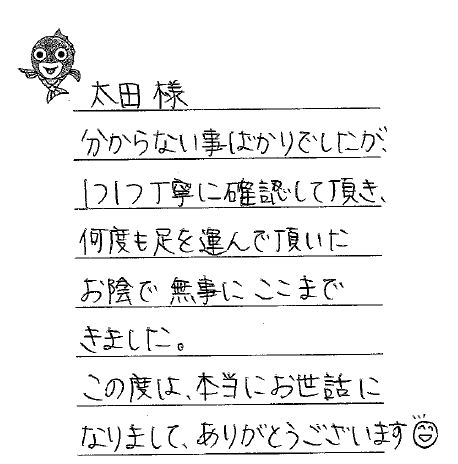 太田 様
分からない事ばかりでしたが、
1つ1つ丁寧に確認して頂き、
何度も足を運んで頂いた
お陰で 無事に ここまで
きました。
この度は、本当にお世話に
なりまして、ありがとうございます